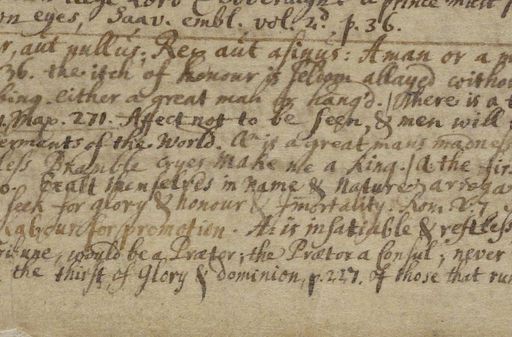 on eyes, Saav. embl. vol. 2d, p. 36.
r, aut nullus; Rex aut asinus: A man or a m
36. the itch of honour is seldom allayed witho
king. either a great man or hang'd. / There is a t
Map. 271. Affect not to be seen, & men will
erments of the World. An is a great mans madness
less Bramble cryes make me a King. / A the fir
o. Exalt themselves in name & Nature arroga
seek for glory & honour & Immortality. Rom. 2.7.
labour for promotion. A. is insatiable & restless
ribune, would be a Prætor; the Prætor a Consul; never
the thirst of Glory & dominion, p. 227. of those that ru